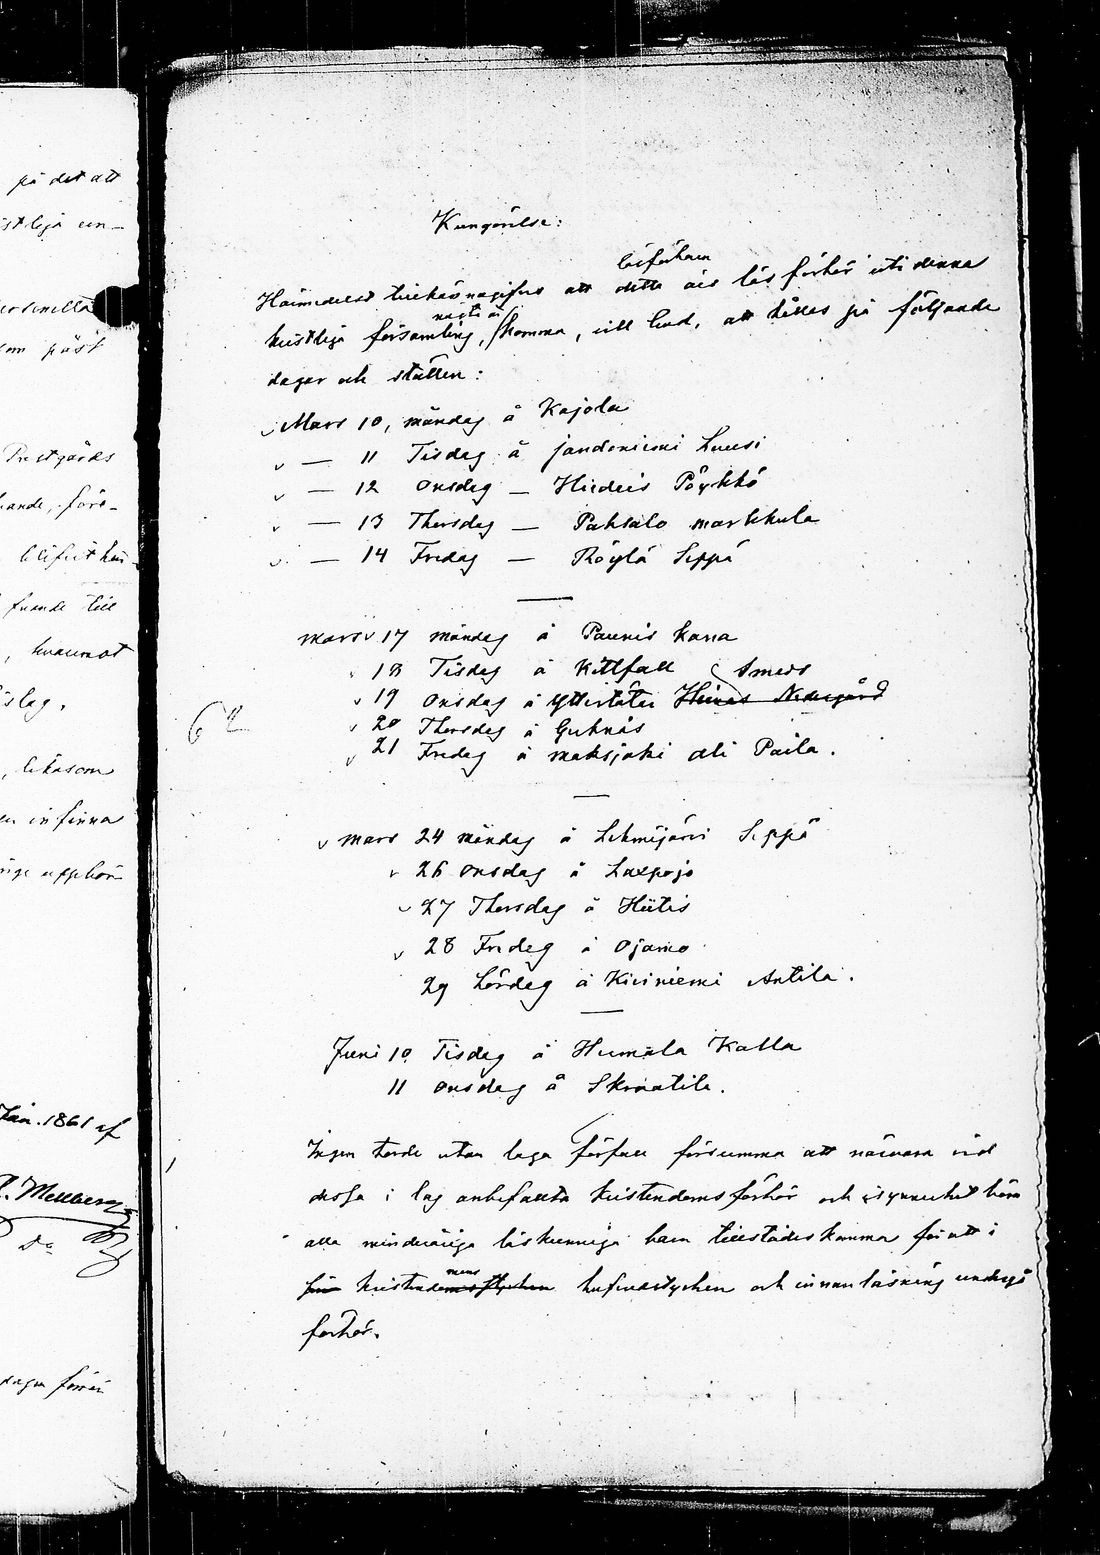 på det att
Prestgårds
, hvarmot
, likasom
infinna
Jan. 1861 af
Mellberg
Kungörelse:
läsförhören
Härmedelst tillkännagifves att detta års läs förhör uti denna
kristliga församling, komma, vill Gud, att hållas på följande
dagar och ställen:
Mars 10, måndag å Kajola
— 11 Tisdag å jandoniemi Luusi
— 12 Onsdag — Hirdeis Pöykkö
— 13 Thorsdag — Paksalo markkula
— 14 Fredag — Röylä Seppä
mars 17 måndag å Paunis kana
18 Tisdag å Kittfall Smeds
19 Onsdag å Ytterstatu Nedergård
20 Thorsdag å Gutnäs
21 Fredag å maksjoki ali Paila.
62
mars 24 måndag å Lehmijärvi Seppä
26 onsdag å Laxpojo
27 Thorsdag å Hiitis
28 Fredag å Ojamo
29 Lördag å Kiviniemi Antila.
Juni 10 Tisdag å Humala Kalla
11 onsdag å Skraatila.
Ingen torde utan laga förfall försumma att närvara vid
dessa i lag anbefallta kristendomsförhör och i synnerhet böra
alla minderåriga läskunniga barn tillstädeskomma för att i
kristendomens hufvudstycken och innanläsning undergå
förhör.